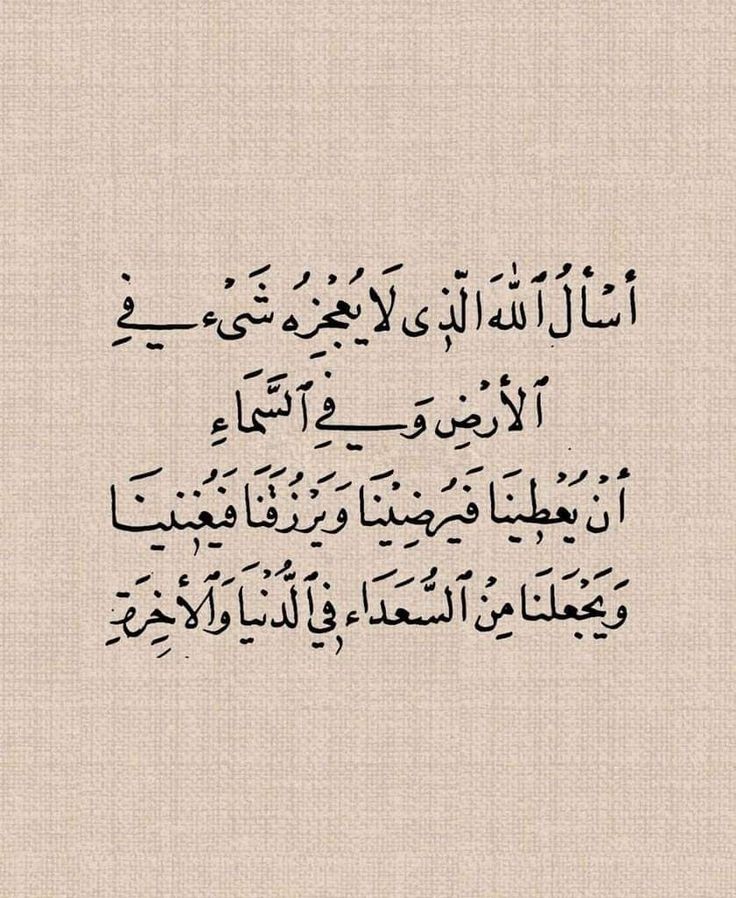 أَسْأَلُ ٱللّٰهَ الَّذِى لَا يُعْجِزُهُ شَىْء فِي
ٱلأَرْضِ وَفِي ٱلسَّمَاءِ
أَنْ يُعْطِينَا فَيُرْضِيْنَا وَيَرْزُقَنَا فَيُغْنِينَا
وَيَجْعَلَنَا مِنْ ٱلسُّعَدَاءِ فِي ٱلدُّنْيَا وَٱلأَخِرَةِ